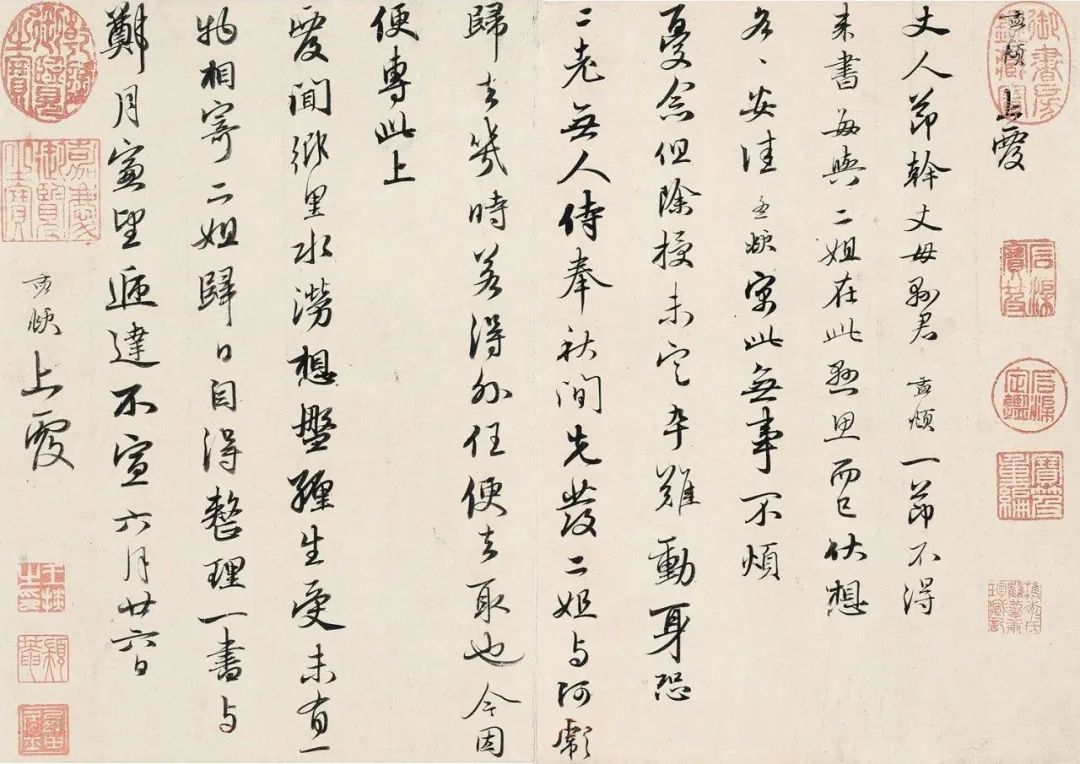 孟頫上覆
丈人節幹丈母縣君孟頫一節不得
来書每與二姐在此懸思而已伏想
各〻安佳孟頫寓此無事不煩
憂念但除授未定卒難動身恐
二老無人侍奉秋間先發二姐与阿彪
歸去幾時若得外任便去取也今因
便專此上
覆聞鄉里水澇想盤纏生受未有一
物相寄二姐歸日自得整理一書与
鄭月窗望遞達不宣六月廿六日
孟頫上覆
御書房鑑藏寶
石渠寶笈
石渠定鑑
寶笈重編
乾隆御覽之寶
嘉慶御覽之寶